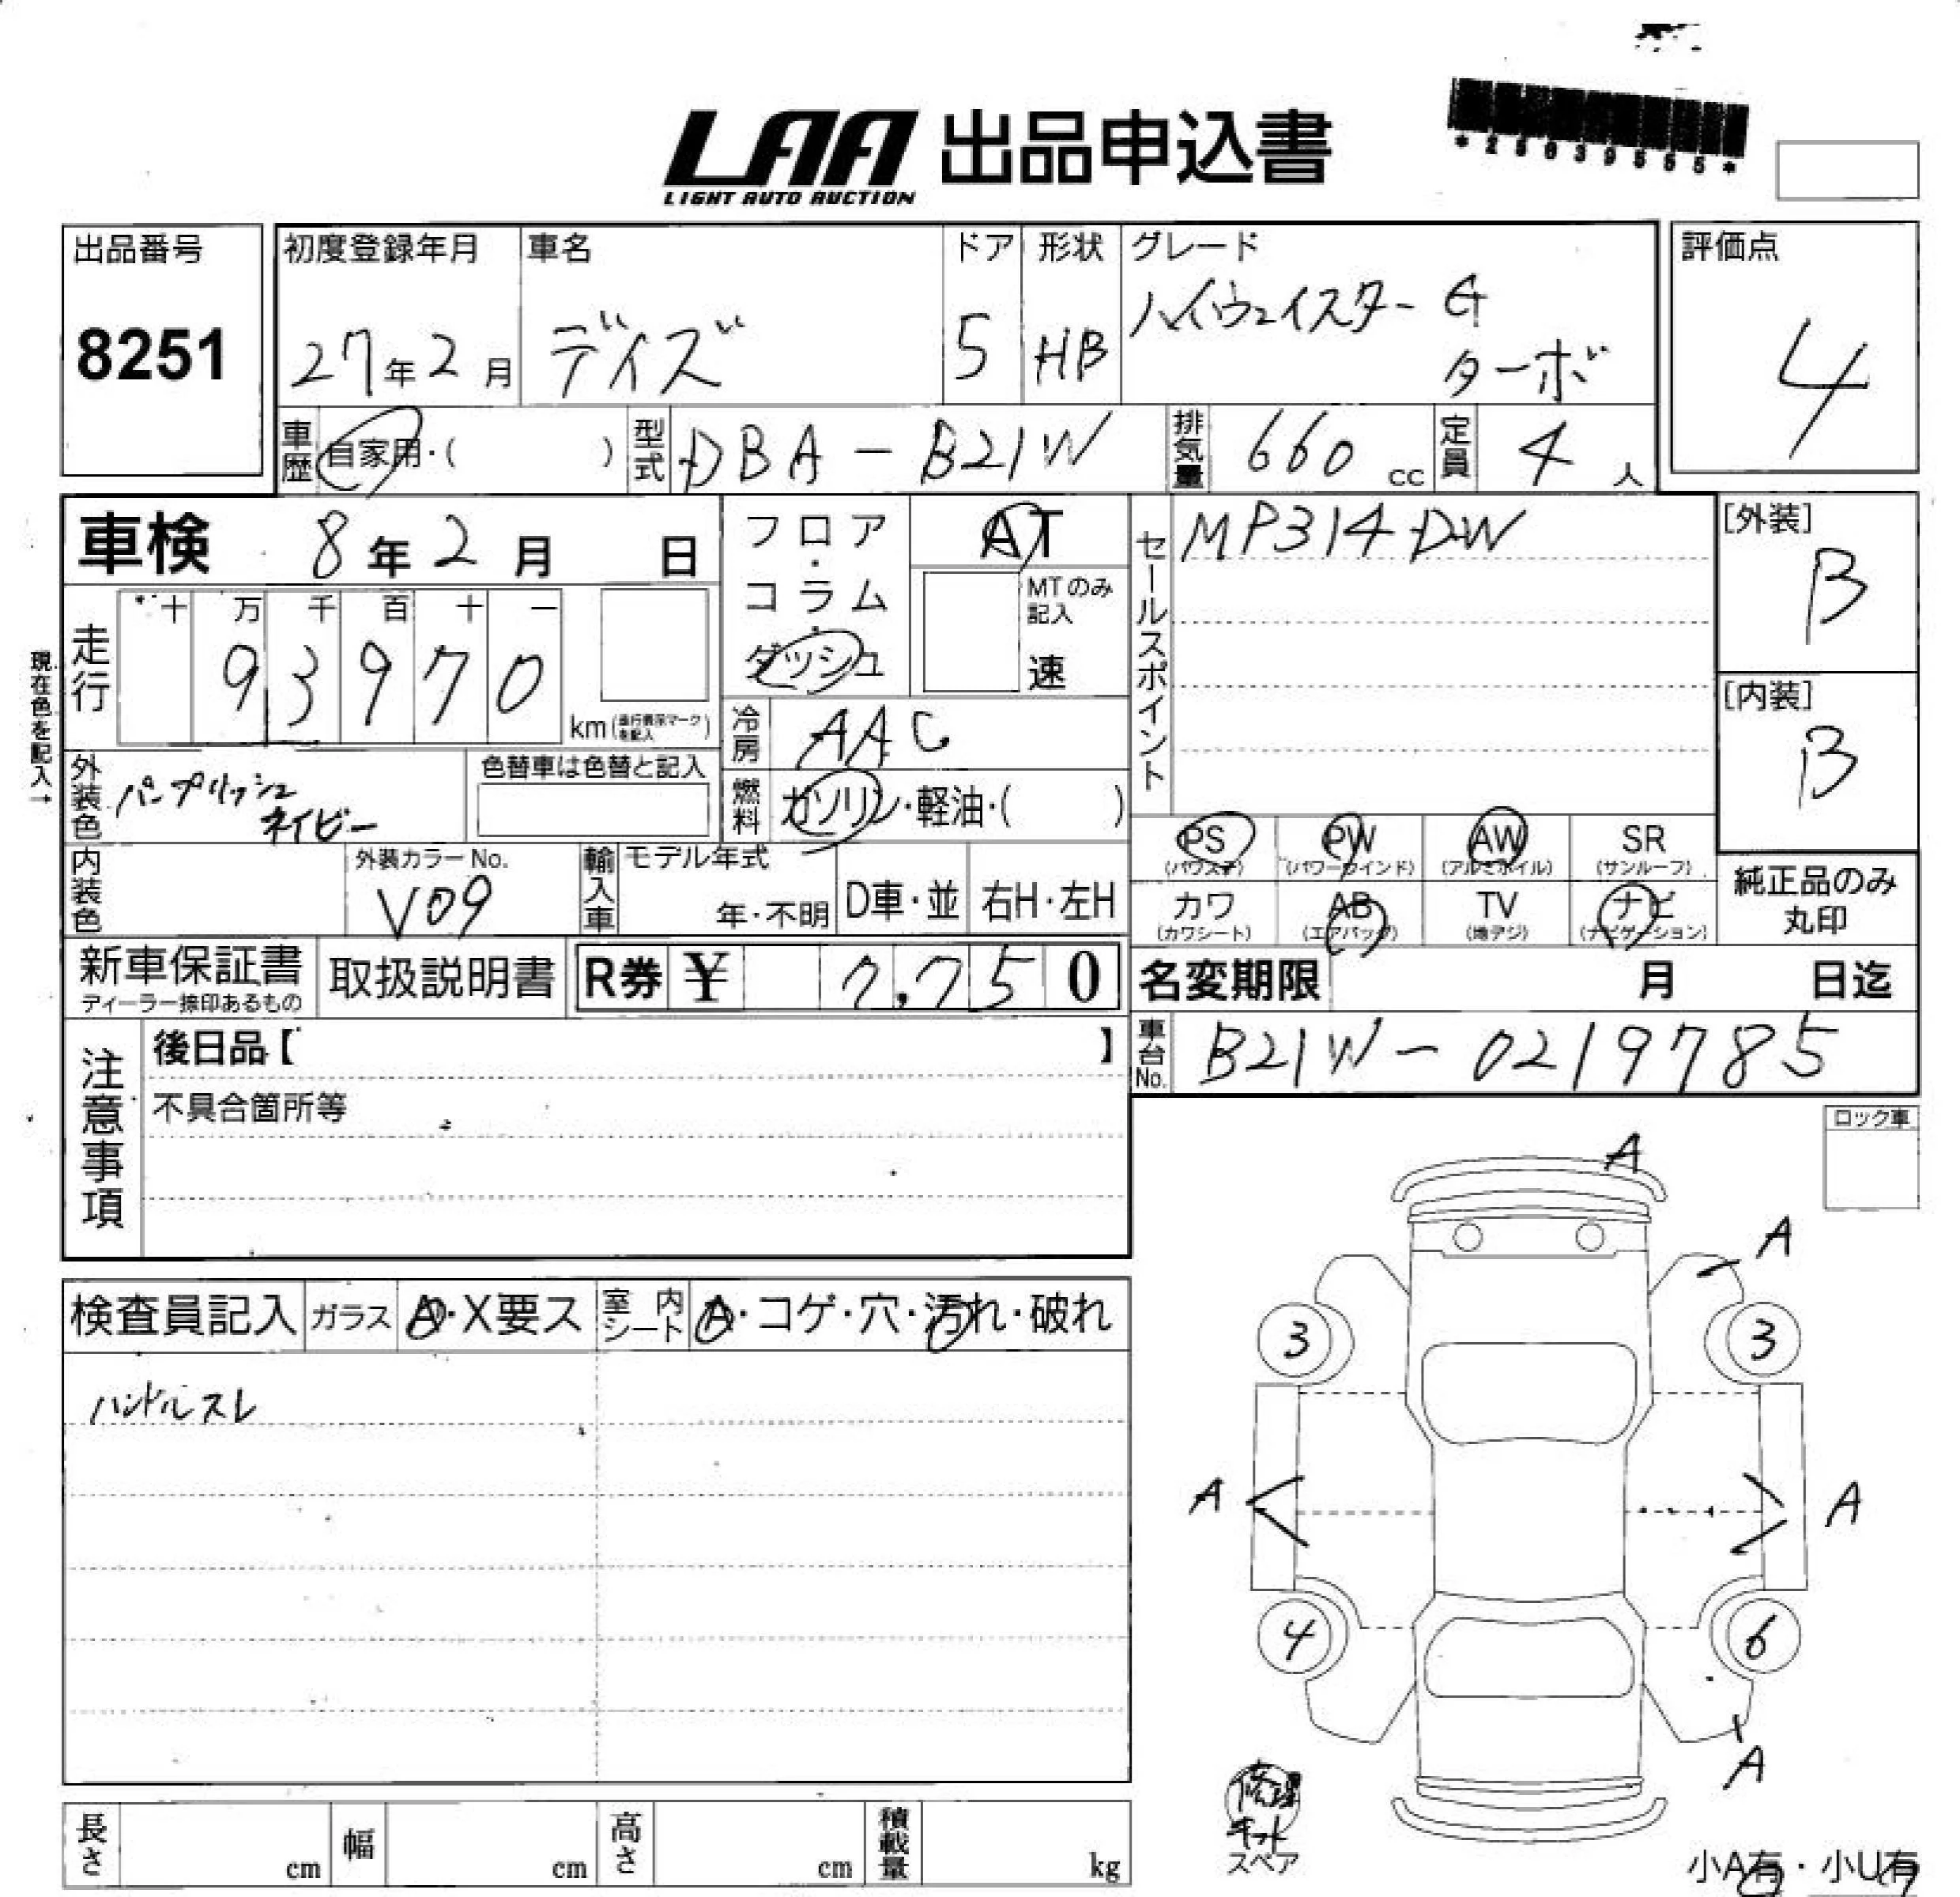 LAA 出品申込書
LIGHT AUTO AUCTION
出品番号
8251
初度登録年月
27年2月
車名
デイズ
ドア
5
形状
HB
グレード
ハイウェイスター G
ターボ
評価点
4
車歴
自家用・( )
型式
DBA-B21W
排気量
660 cc
定員
4 人
車検 8年2月 日
走行
十 万 千 百 十 一
9 3 9 7 0
km
フロア・
コラム・
ダッシュ
AT
MTのみ
記入
速
冷房
AAC
燃料
ガソリン・軽油・( )
セールスポイント
MP314DW
[外装]
B
[内装]
B
現在色を記入→
外装色
パープリッシュ
ネイビー
色替車は色替と記入
内装色
外装カラーNo.
V09
輸入車
モデル年式
年・不明
D車・並
右H・左H
PS
PW
(パワーウインド)
AW
(アルミホイル)
SR
(サンルーフ)
カワ
(カワシート)
AB
(エアバッグ)
TV
(地デジ)
ナビ
(ナビゲーション)
純正品のみ
丸印
新車保証書
ディーラー捺印あるもの
取扱説明書
R券 ¥ 7,750
名変期限 月 日迄
車台No.
B21W-0219785
注意事項
後日品【 】
不具合箇所等
ロック車
検査員記入
ガラス
A・X要ス
室内シート
A・コゲ・穴・汚れ・破れ
ハンドルスレ
A
A
3
3
A
A
4
6
A
修理
キット
スペア
小A有・小U有
長さ cm
幅 cm
高さ cm
積載量 kg